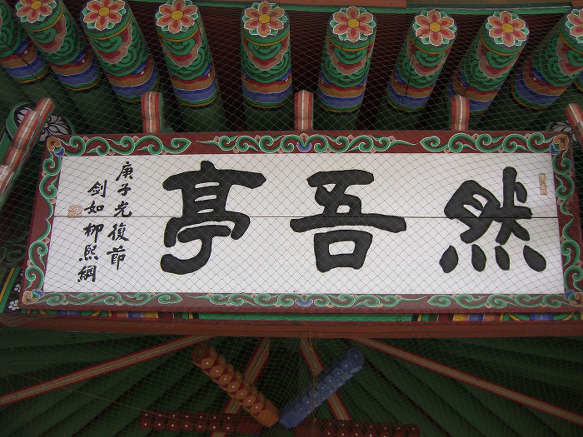 然吾亭
庚子光復節
劍如柳熙綱